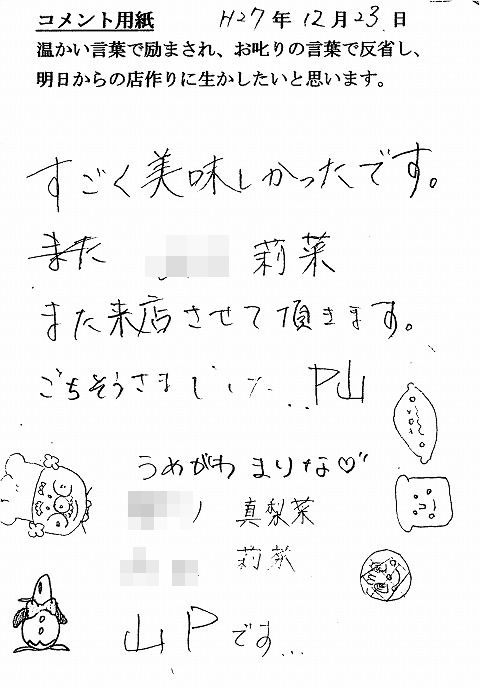 コメント用紙 H27年12月23日
温かい言葉で励まされ、お叱りの言葉で反省し、
明日からの店作りに生かしたいと思います。
すごく美味しかったです。
また
莉菜
また来店させて頂きます。
ごちそうさまでした... P山
うめがわ まりな♡
真梨菜
莉菜
山Pです...